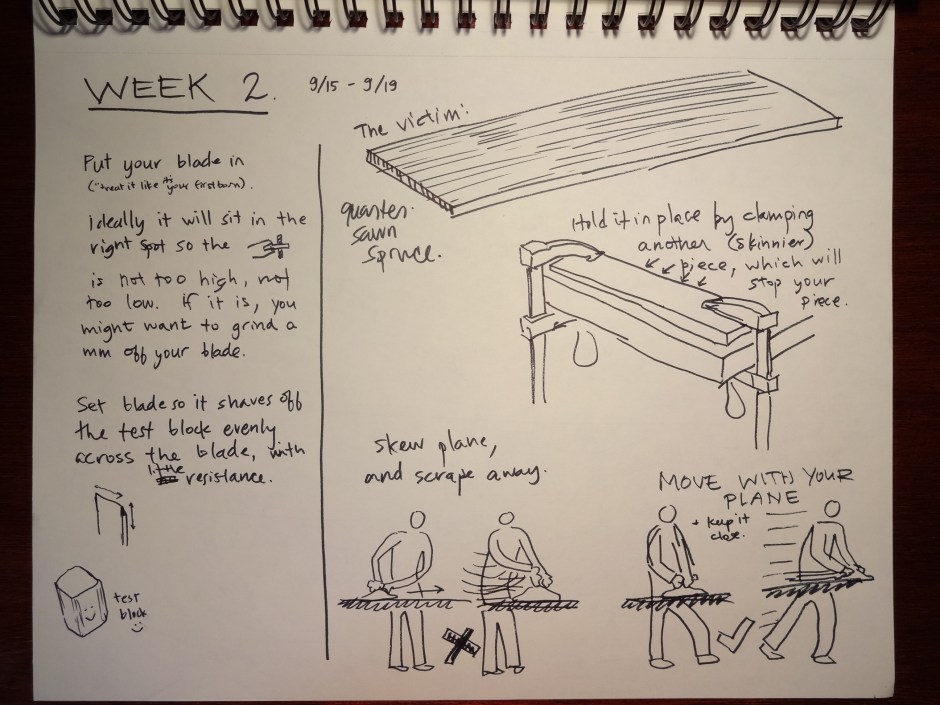 WEEK 2.
9/15 - 9/19
Put your blade in
("treat it like it's your firstborn).
Ideally it will sit in the
right spot so the
is not too high, not
too low. If it is, you
might want to grind a
mm off your blade.
Set blade so it shaves off
the test block evenly
across the blade, with
little
resistance.
test
block
The victim:
quarter
sawn
spruce.
Hold it in place by clamping
another (skinnier)
piece, which will
stop your
piece.
skew plane,
and scrape away.
MOVE WITH YOUR
PLANE
+ keep it
close.